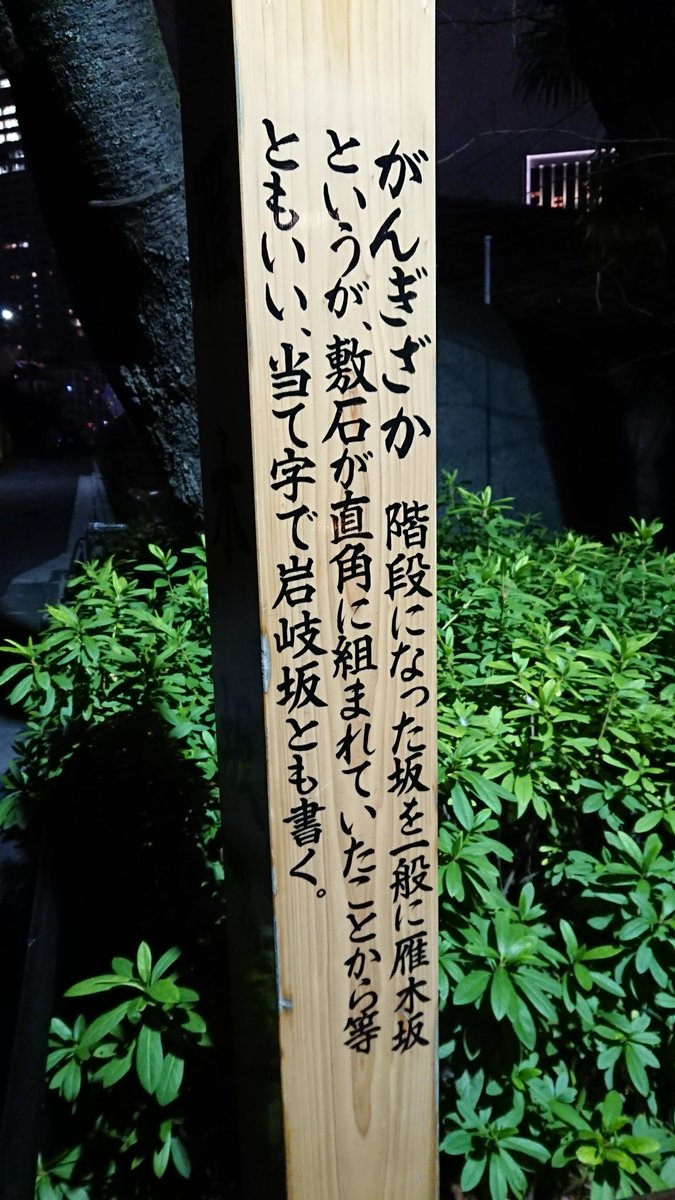 がんぎざか 階段になった坂を一般に雁木坂
というが、敷石が直角に組まれていたことから等
ともいい、当て字で岩岐坂とも書く。